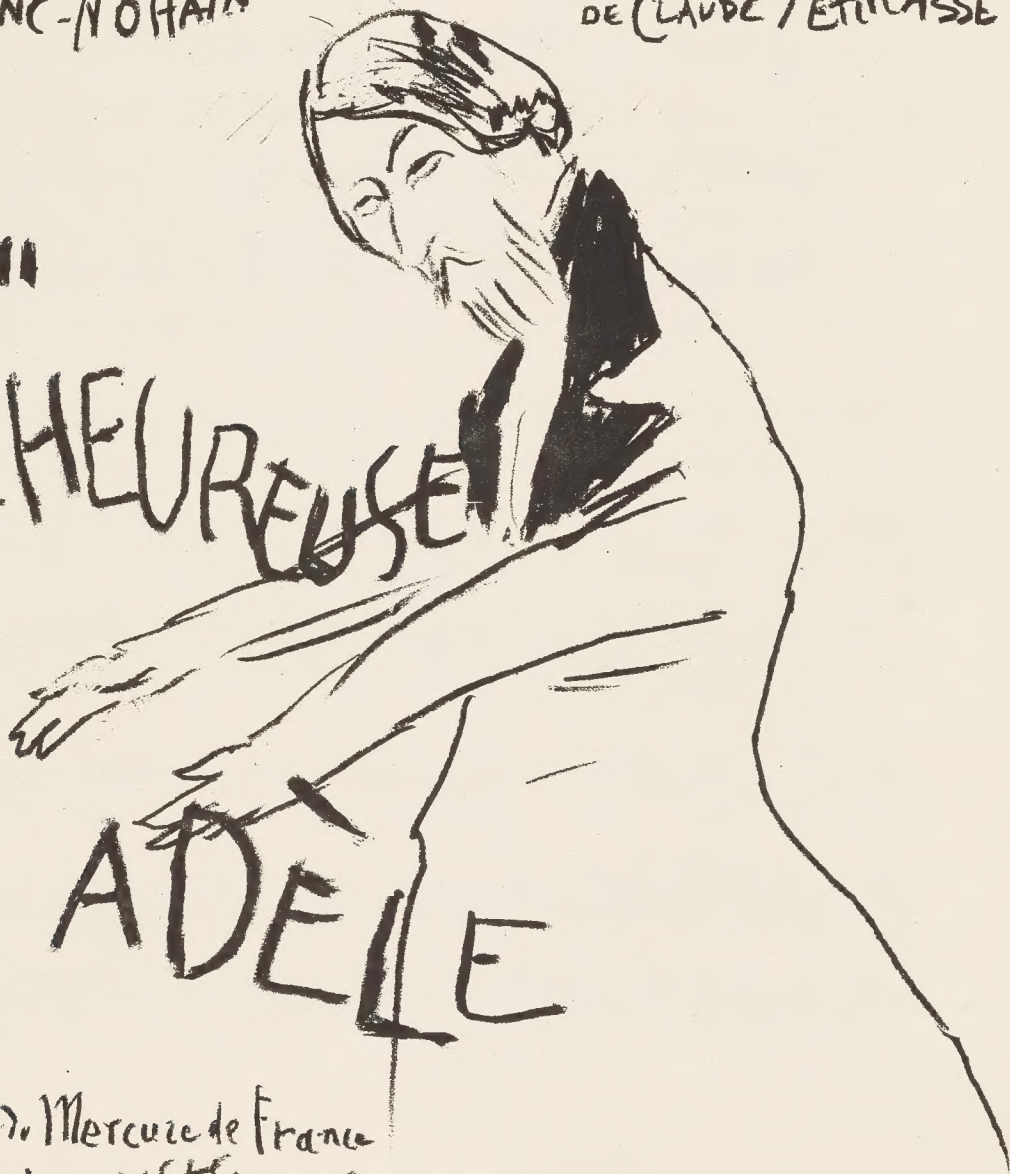 NC-NOHAIN DE CLAUDE TERRASSE
"
HEUREUSE
ADÈLE
du Mercure de France